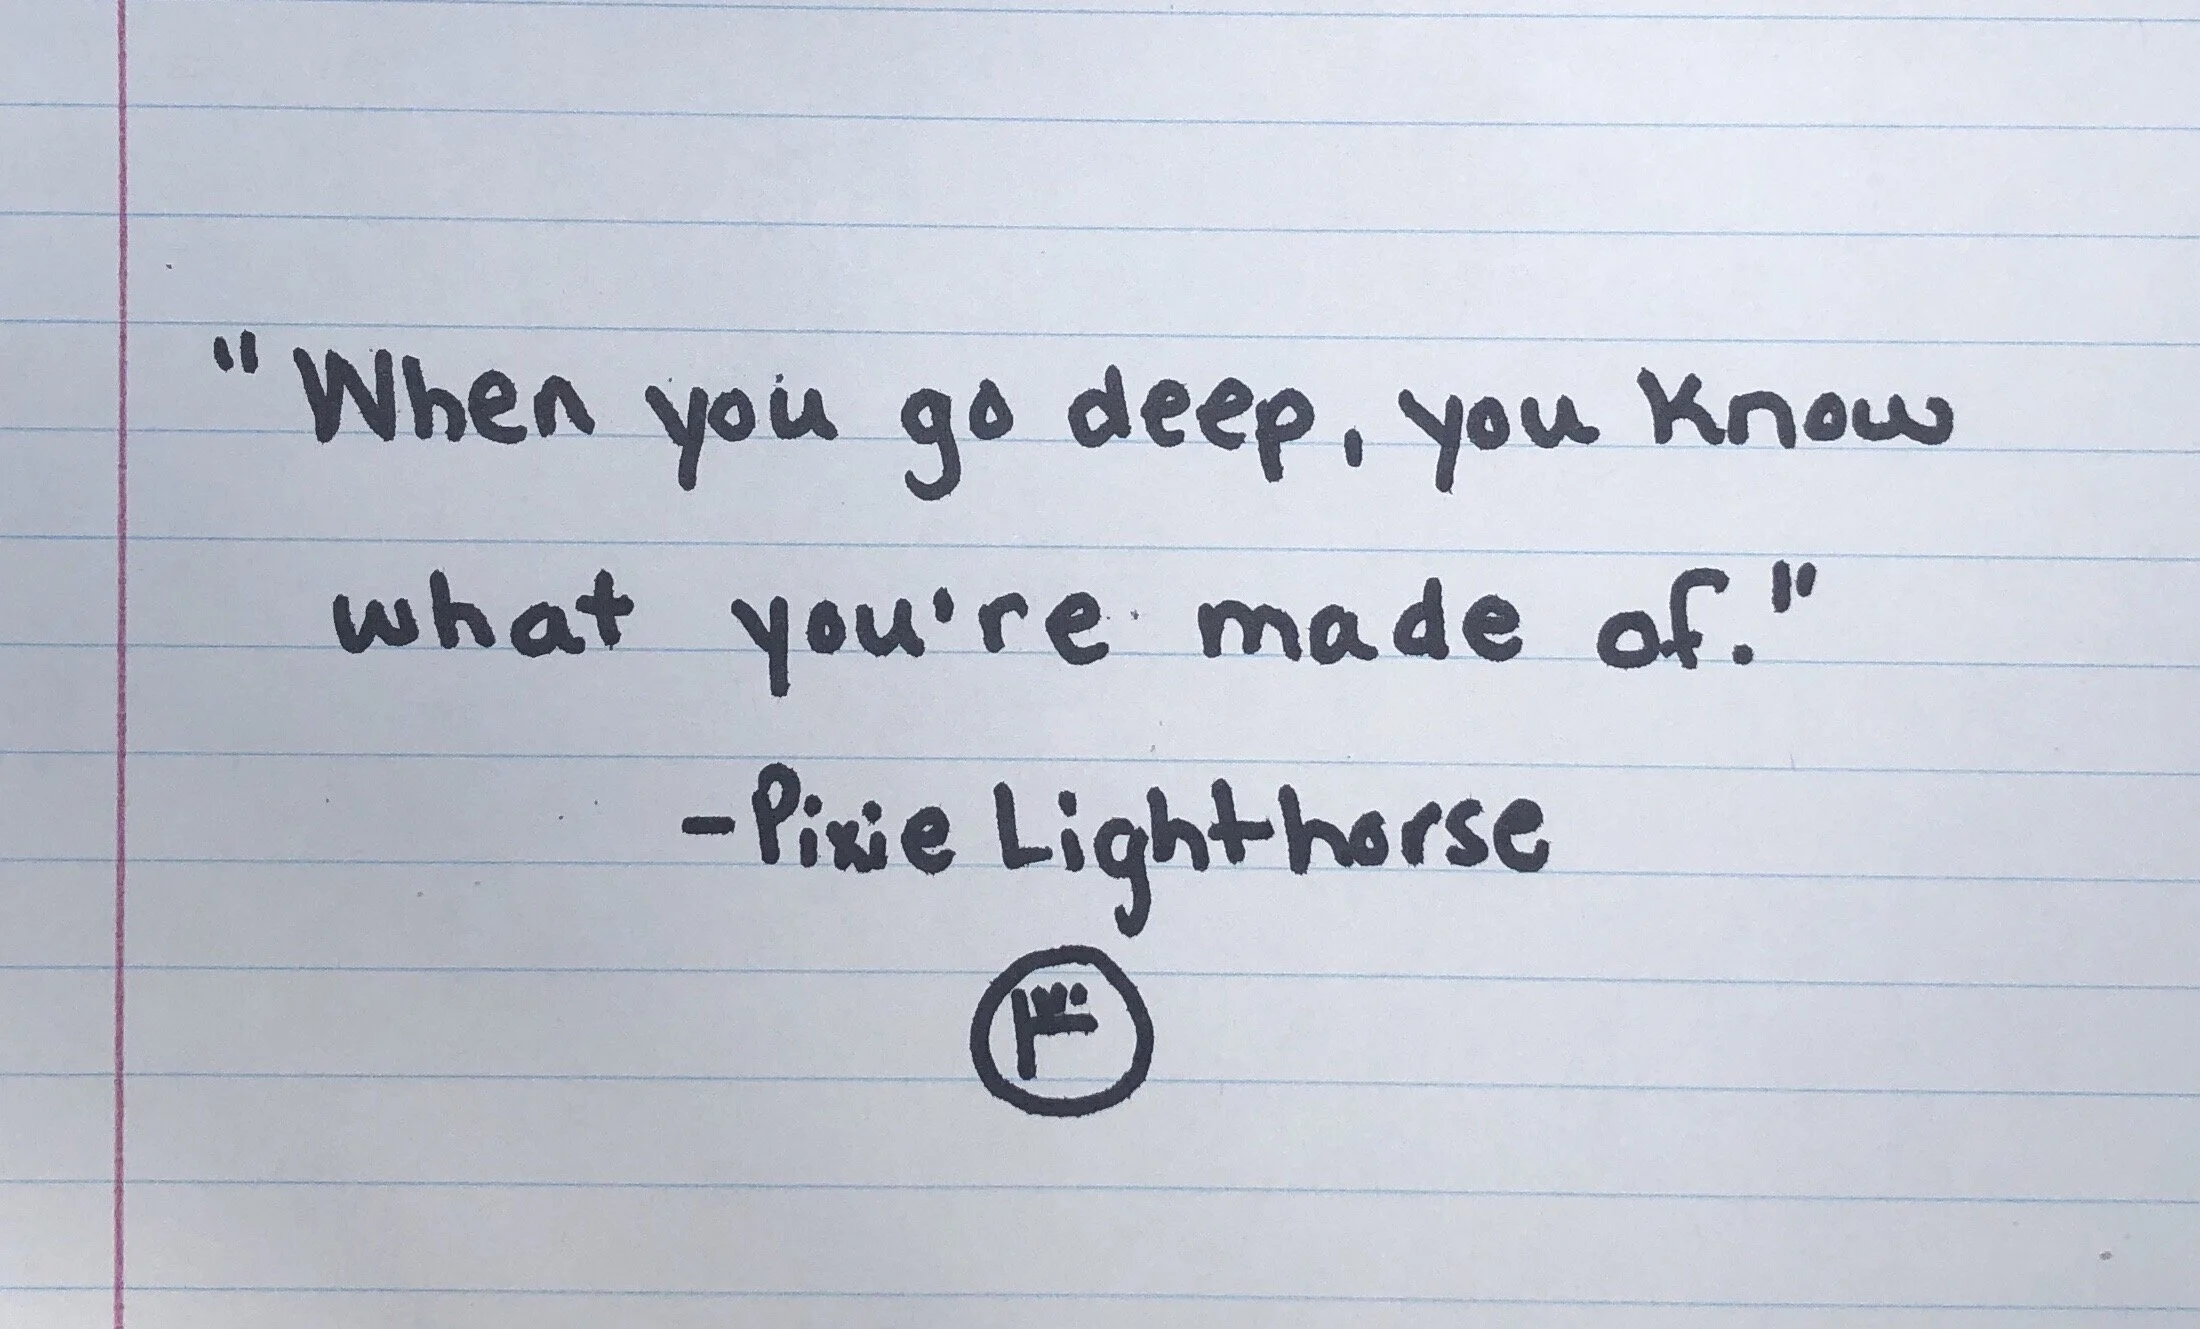 "When you go deep, you know
what you're made of."
-Pixie Lighthorse